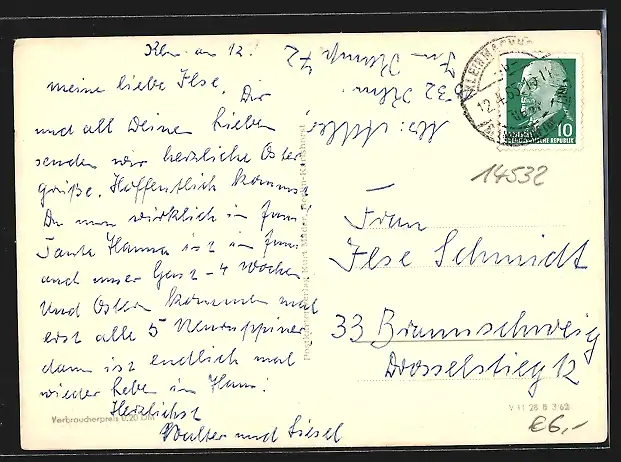 Klm. am 12.
meine liebe Ilse. Dir
und all Deinen Lieben
senden wir herzliche Oster
grüße. Hoffentlich kommst
Du nun wirklich im Juni
Tante Hanna ist im Juni
auch unser Gast - 4 Wochen
Und Ostern kommen mal
erst alle 5 Neuruppiner
dann ist endlich mal
wieder Leben im Haus!
Herzlichst
Walter und Liesel
Verbraucherpreis 0,20 DM
532 Klm.
KLEINMACHNOW
12.4.65
10
DEUTSCHE DEMOKRATISCHE REPUBLIK
14532
Frau
Ilse Schmidt
33 Braunschweig
Drosselstieg 12
V 11 28 B 3/62
€6,-